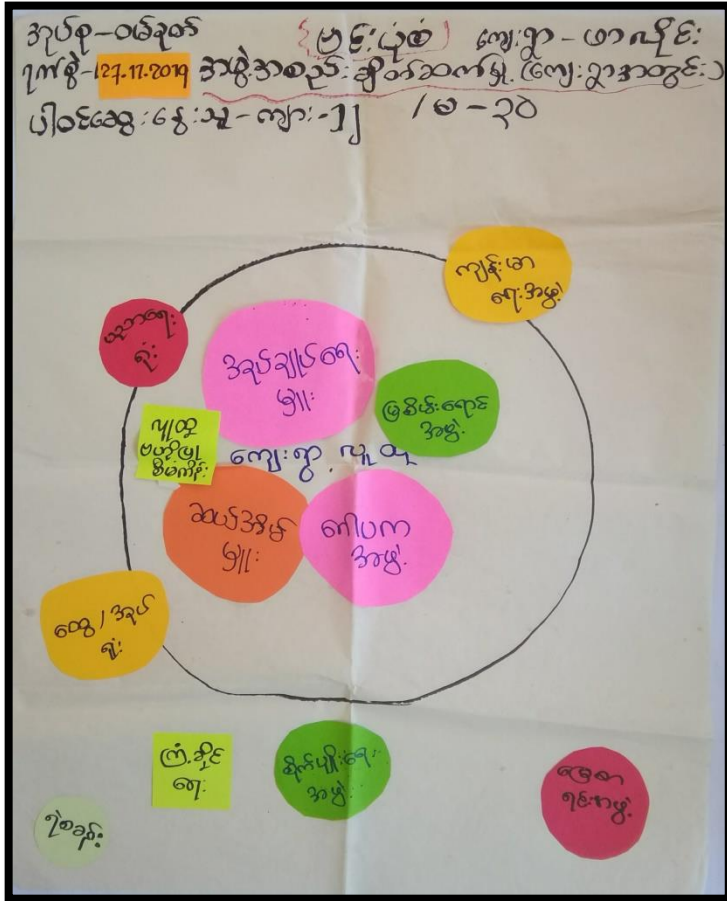 အုပ်စု-ဝမ်ခုတ် {ဗင်းပုံစံ} ကျေးရွာ-ဟာလိုင်း
ရက်စွဲ-27.11.2019 အဖွဲ့အစည်းချိတ်ဆက်မှု (ကျေးရွာအတွင်း)
ပါဝင်ဆွေးနွေးသူ-ကျား-၁၂ /မ-၃၀
ကျန်းမာ
ရေးအဖွဲ့
ရုံး
အုပ်ချုပ်ရေး
မှူး
မြစိမ်းရောင်
အဖွဲ့
လူထု
ဗဟိုပြု
စီမံကိန်း
ကျေးရွာ လူထု
ဆယ်အိမ်
မှူး
ဂေါပက
အဖွဲ့
ထွေ/အုပ်
ရုံး
ကြံ့ခိုင်
ရေး
စိုက်ပျိုးရေး
အဖွဲ့
မြေစာ
ရင်းအဖွဲ့
ရဲစခန်း